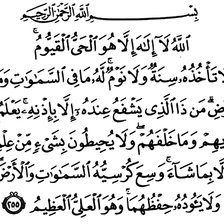 بِسْمِ اللَّهِ الرَّحْمَٰنِ الرَّحِيمِ
اللَّهُ لَا إِلَٰهَ إِلَّا هُوَ الْحَيُّ الْقَيُّومُ ۚ
لَا تَأْخُذُهُ سِنَةٌ وَلَا نَوْمٌ ۚ لَهُ مَا فِي السَّمَٰوَٰتِ وَمَا
ضِ ۗ مَنْ ذَا الَّذِي يَشْفَعُ عِنْدَهُ إِلَّا بِإِذْنِهِ ۚ يَعْلَمُ
يهِمْ وَمَا خَلْفَهُمْ ۖ وَلَا يُحِيطُونَ بِشَيْءٍ مِنْ عِلْمِ
إِلَّا بِمَا شَاءَ ۚ وَسِعَ كُرْسِيُّهُ السَّمَٰوَٰتِ وَالْأَرْضَ
وَلَا يَئُودُهُ حِفْظُهُمَا ۚ وَهُوَ الْعَلِيُّ الْعَظِيمُ ٢٥٥